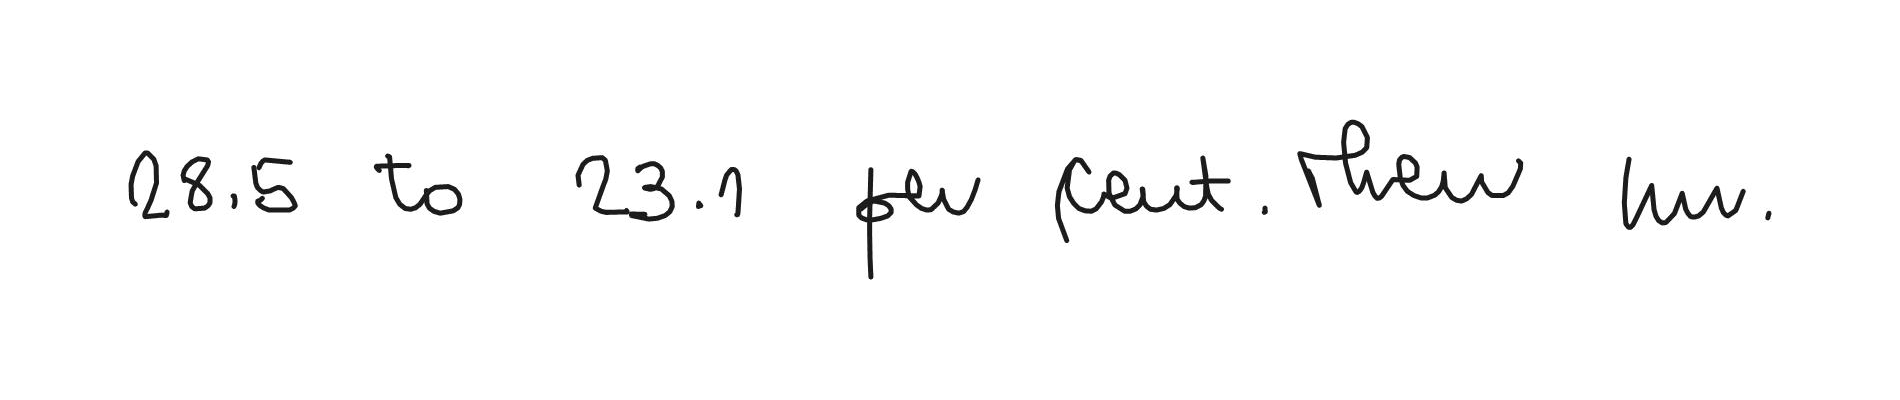 28.5 to 23.1 per cent. Then Mr.